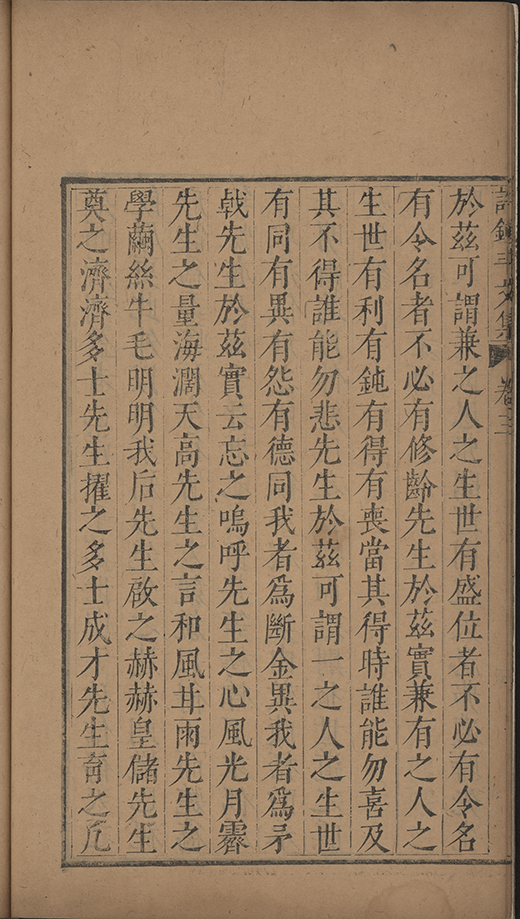 許鍾斗文集 卷三
於茲可謂兼之人之生世有盛位者不必有令名
有令名者不必有修齡先生於茲實兼有之人之
生世有利有鈍有得有喪當其得時誰能勿喜及
其不得誰能勿悲先生於茲可謂一之人之生世
有同有異有怨有德同我者爲斷金異我者爲矛
戟先生於茲實云忘之嗚呼先生之心風光月霽
先生之量海濶天高先生之言和風甘雨先生之
學繭絲牛毛明明我后先生啟之赫赫皇儲先生
奠之濟濟多士先生擢之多士成才先生育之凡